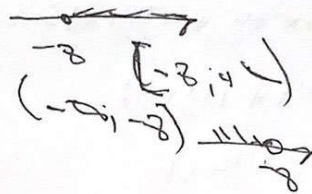 -8 [-8;4)
(-∞;-8)
-8